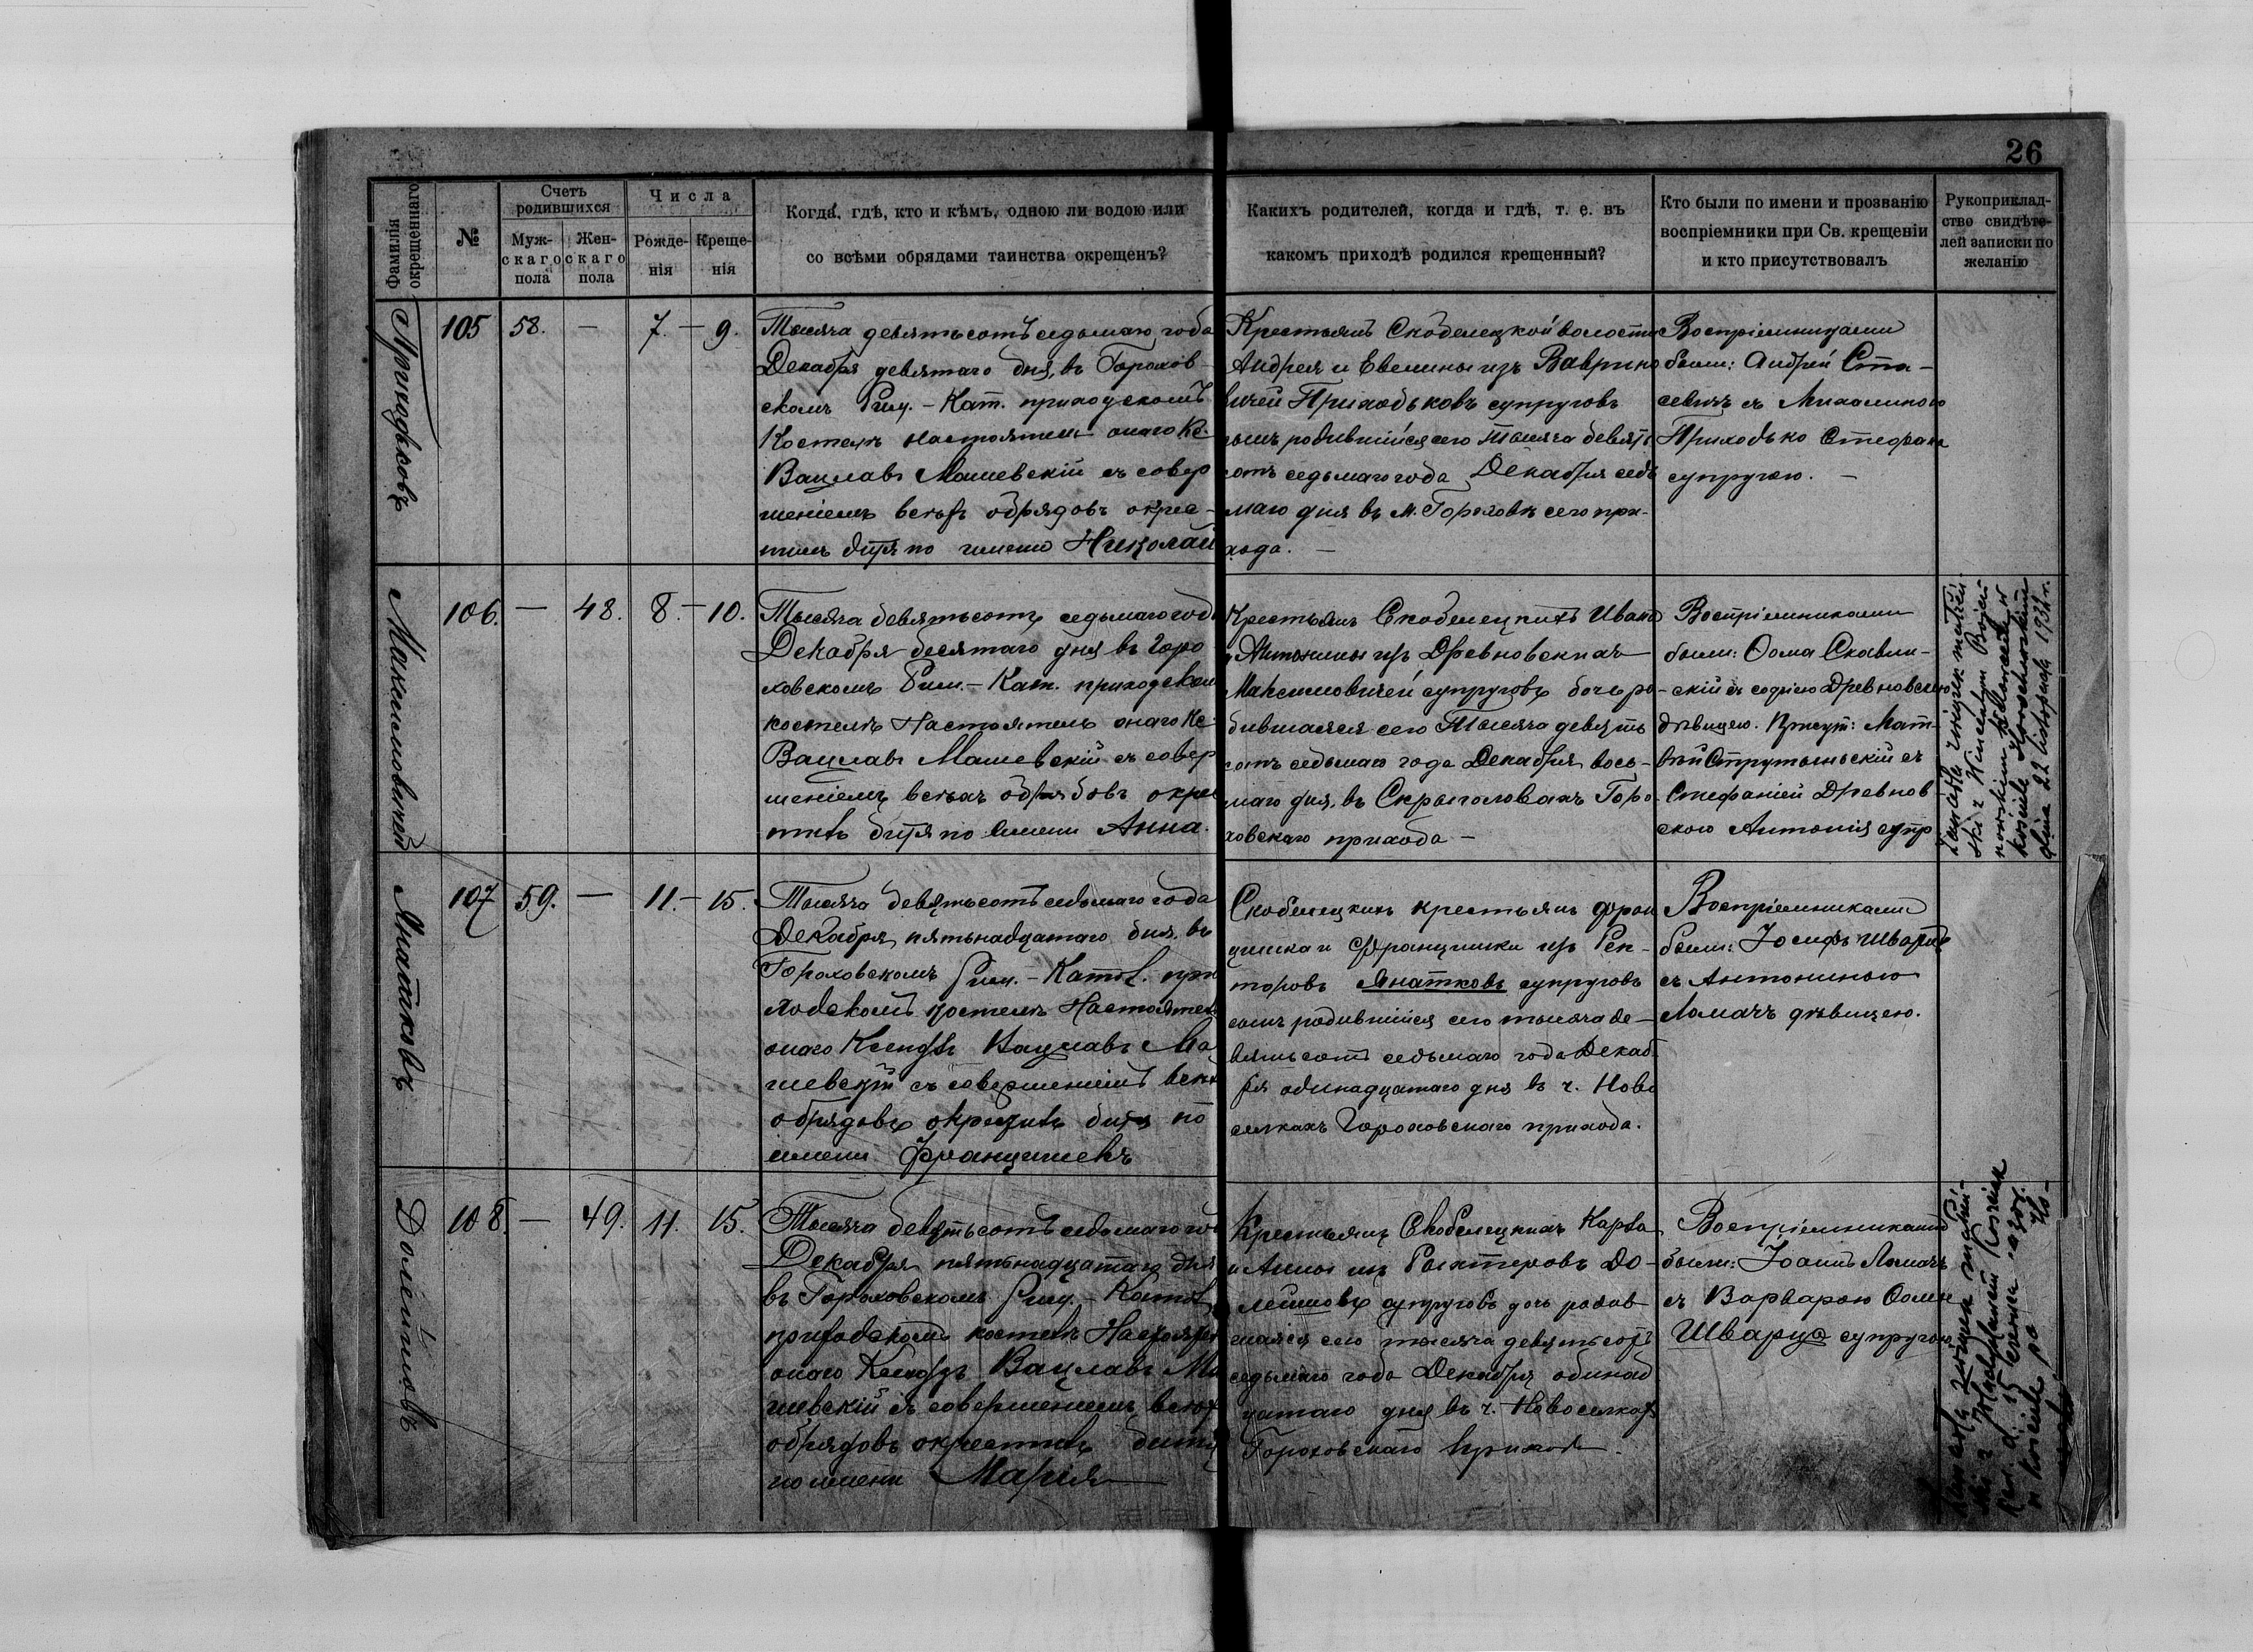 26
Фамилія окрещеннаго
№
Счетъ родившихся
Муж-
скаго
пола
Жен-
скаго
пола
Числа
Рожде-
нія
Креще-
нія
Когда, гдѣ, кто и кѣмъ, одною ли водою или
со всѣми обрядами таинства окрещенъ?
Какихъ родителей, когда и гдѣ, т. е. въ
какомъ приходѣ родился крещенный?
Кто были по имени и прозванію
воспріемники при Св. крещеніи
и кто присутствовалъ
Рукоприклад-
ство свидѣте-
лей записки по
желанію
Приходьковъ
105 58. — 7. — 9.
Тысяча девятьсотъ седьмаго года
Декабря девятаго дня, въ Горохов-
скомъ Рим.-Кат. приходскомъ
Костелѣ Настоятель онаго Кс.
Вацлавъ Машевскій съ совер
шеніемъ всѣхъ обрядовъ окрес-
тилъ дитя по имени Николай
Крестьянъ Скобелецкой волости
Андрея и Евелины изъ Ваврино
вичей Приходьковъ супруговъ
сынъ родившійся сего тысяча девять
сотъ седьмаго года Декабря седь
маго дня въ м. Гороховѣ сего при-
хода. —
Воспріемниками
были: Андрей Ста-
севичъ съ
Приходько Стефана
супругою. —
Максимовичей
106. — 48. 8. — 10.
Тысяча девятьсотъ седьмаго года
Декабря десятаго дня въ Горо
ховскомъ Рим.-Кат. приходском
костелѣ Настоятель онаго Кс.
Вацлавъ Машевскій съ совер
шеніемъ всѣхъ обрядовъ окрес
тилъ дитя по имени Анна.
Крестьянъ Скобелецкихъ Ивана
и Антонины изъ Древновскихъ
Максимовичей супруговъ дочь ро-
дившаяся сего Тысяча девять
сотъ седьмаго года Декабря вось-
маго дня, въ Скрыголовахъ Горо
ховскаго прихода —
Воспріемниками
были: Ѳома
скій съ Древновскою
дѣвицею. Присут: Мат-
вѣй съ
Стефаніей Древнов
скою Антонія супр
1932 r.
Янатковъ
107 59. — 11. — 15.
Тысяча девятьсотъ седьмаго года
Декабря пятьнадцатаго дня, въ
Гороховскомъ Рим.-Катол. при
ходскомъ костелѣ Настоятель
онаго Ксендзъ Вацлавъ Ма
шевскій съ совершеніемъ всѣх
обрядовъ окрестилъ дитя по
имени Францишекъ
Скобелецкихъ крестьянъ Фран
цишка и Францишки изъ Рех-
торовъ Янатковъ супруговъ
сынъ родившійся сего тысяча де-
вятьсотъ седьмаго года Декаб
ря одинадцатаго дня въ ч. Ново
селкахъ Гороховскаго прихода.
Воспріемниками
были: Іосифъ Шварцъ
съ Антониною
Ломачъ дѣвицею.
Долейшовъ
108. — 49. 11. 15.
Тысяча девятьсотъ седьмаго го
Декабря пятьнадцатаго дня
въ Гороховскомъ Рим.-Катол
приходскомъ костелѣ Настоятел
онаго Ксендзъ Вацлавъ Ма
шевскій съ совершеніемъ всѣх
обрядовъ окрестилъ дитя
по имени Марія
Крестьянъ Скобелецкихъ Карла
и Анны изъ Рыхтеровъ До-
лейшовъ супруговъ дочь родив
шаяся сего тысяча девятьсотъ
седьмаго года Декабря одинад
цатаго дня въ ч. Новоселках
Гороховскаго прихода.
Воспріемниками
были: Іоаннъ Ломачъ
съ Варварою Ѳомы
Шварца супругою